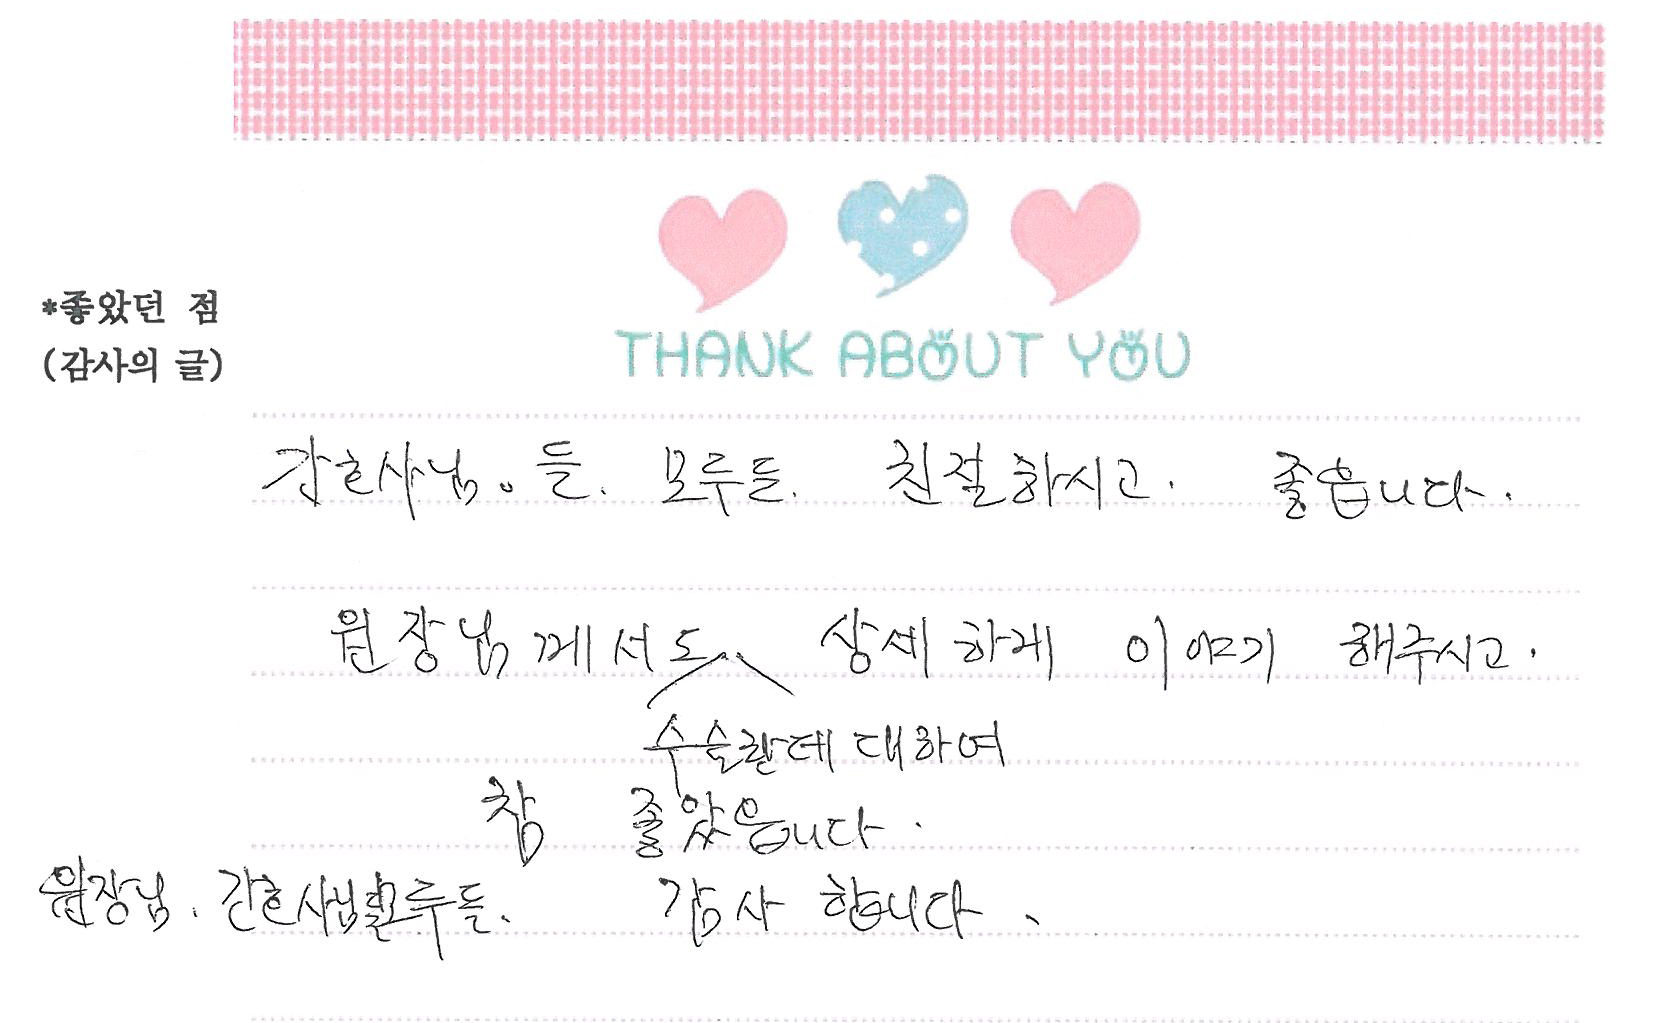 THANK ABOUT YOU
*좋았던 점
(감사의 글)
간호사님。들. 모두들. 친절하시고. 좋읍니다.
원장님께서도 상세하게 이야기 해주시고.
대하여
참 좋았읍니다.
원장님. 간호사님 모두들. 감사 합니다.